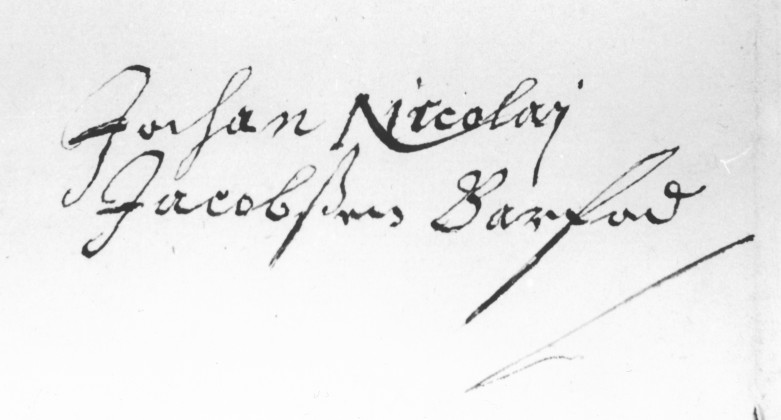 Jochan Nicolaj
Jacobßen Barfod